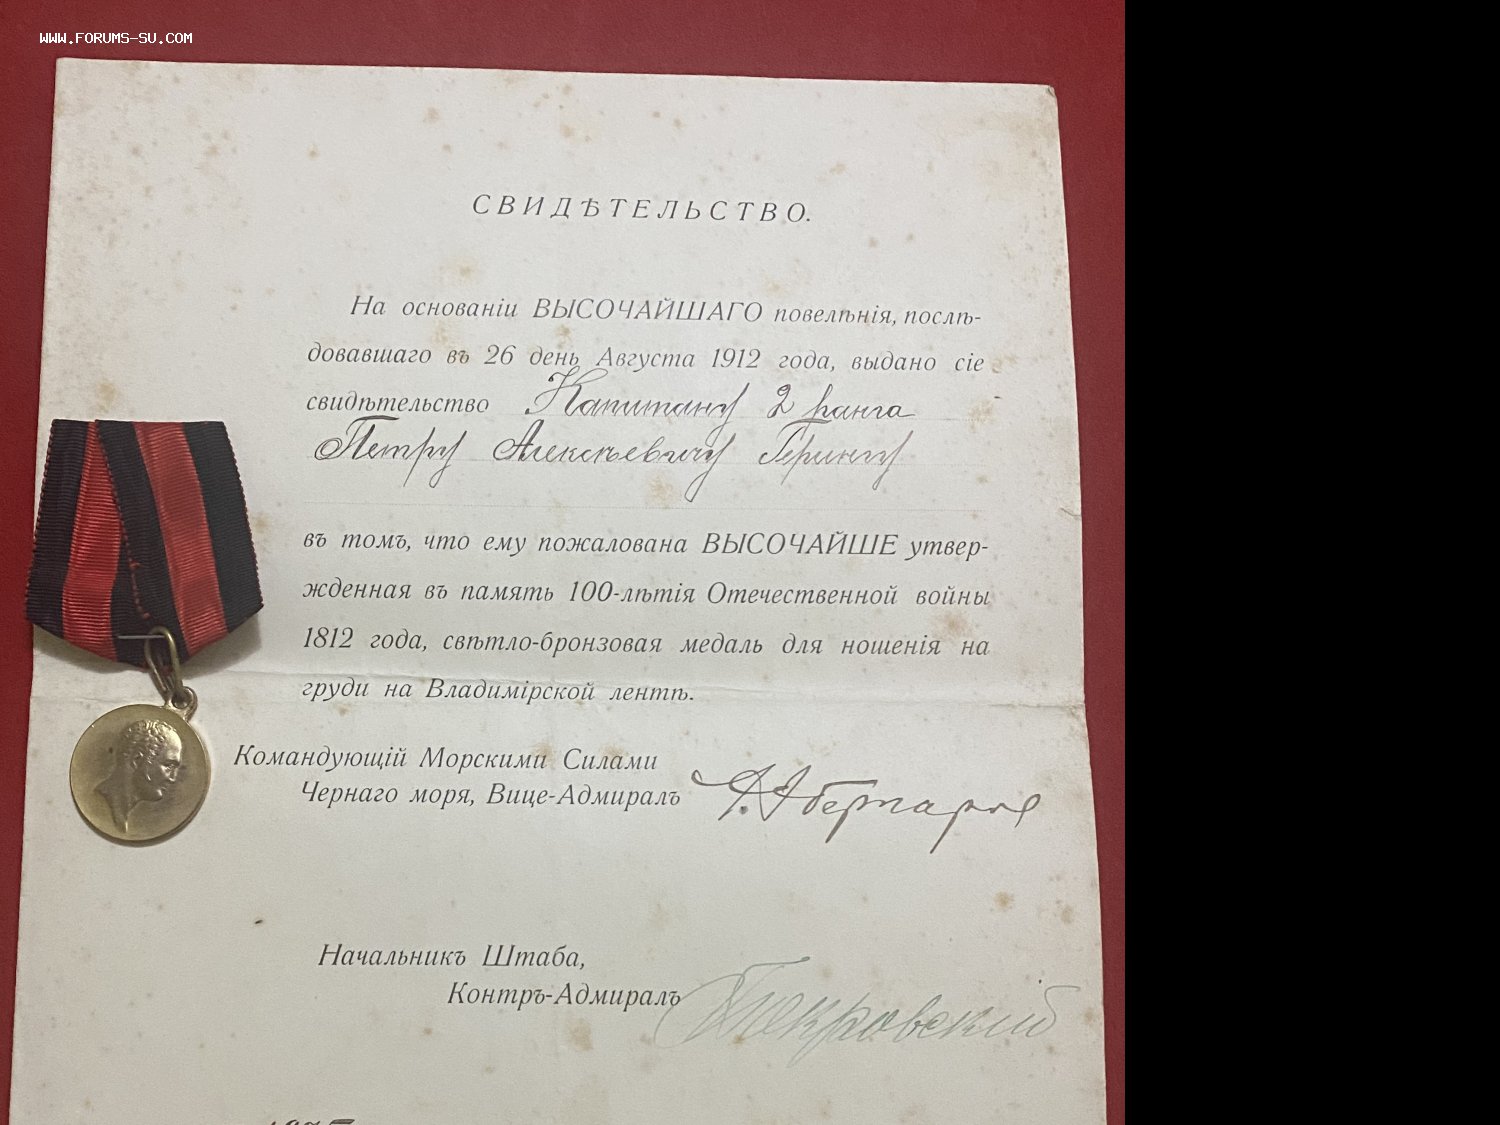 WWW.FORUMS-SU.COM
СВИДѢТЕЛЬСТВО.
На основаніи ВЫСОЧАЙШАГО повелѣнія, послѣ-
довавшаго въ 26 день Августа 1912 года, выдано сіе
свидѣтельство Капитану 2 ранга
Петру Алексѣевичу Герингу
въ томъ, что ему пожалована ВЫСОЧАЙШЕ утвер-
жденная въ память 100-лѣтія Отечественной войны
1812 года, свѣтло-бронзовая медаль для ношенія на
груди на Владимірской лентѣ.
Командующій Морскими Силами
Чернаго моря, Вице-Адмиралъ
Начальникъ Штаба,
Контръ-Адмиралъ Покровскій